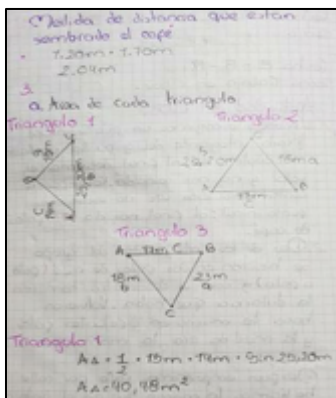 Medida de distancia que estan
sembrado el café
1.20m · 1.70m
2.04m
3.
a. Area de cada triangulo
Triangulo 1
Triangulo 2
A
B
15m a
13m
C
Triangulo 3
A 17m C B
18m
b
23m
a
C
Triangulo 1
A△ = 1/2 · 15m · 14m · Sin 25,20m
A△ = 40,48m²